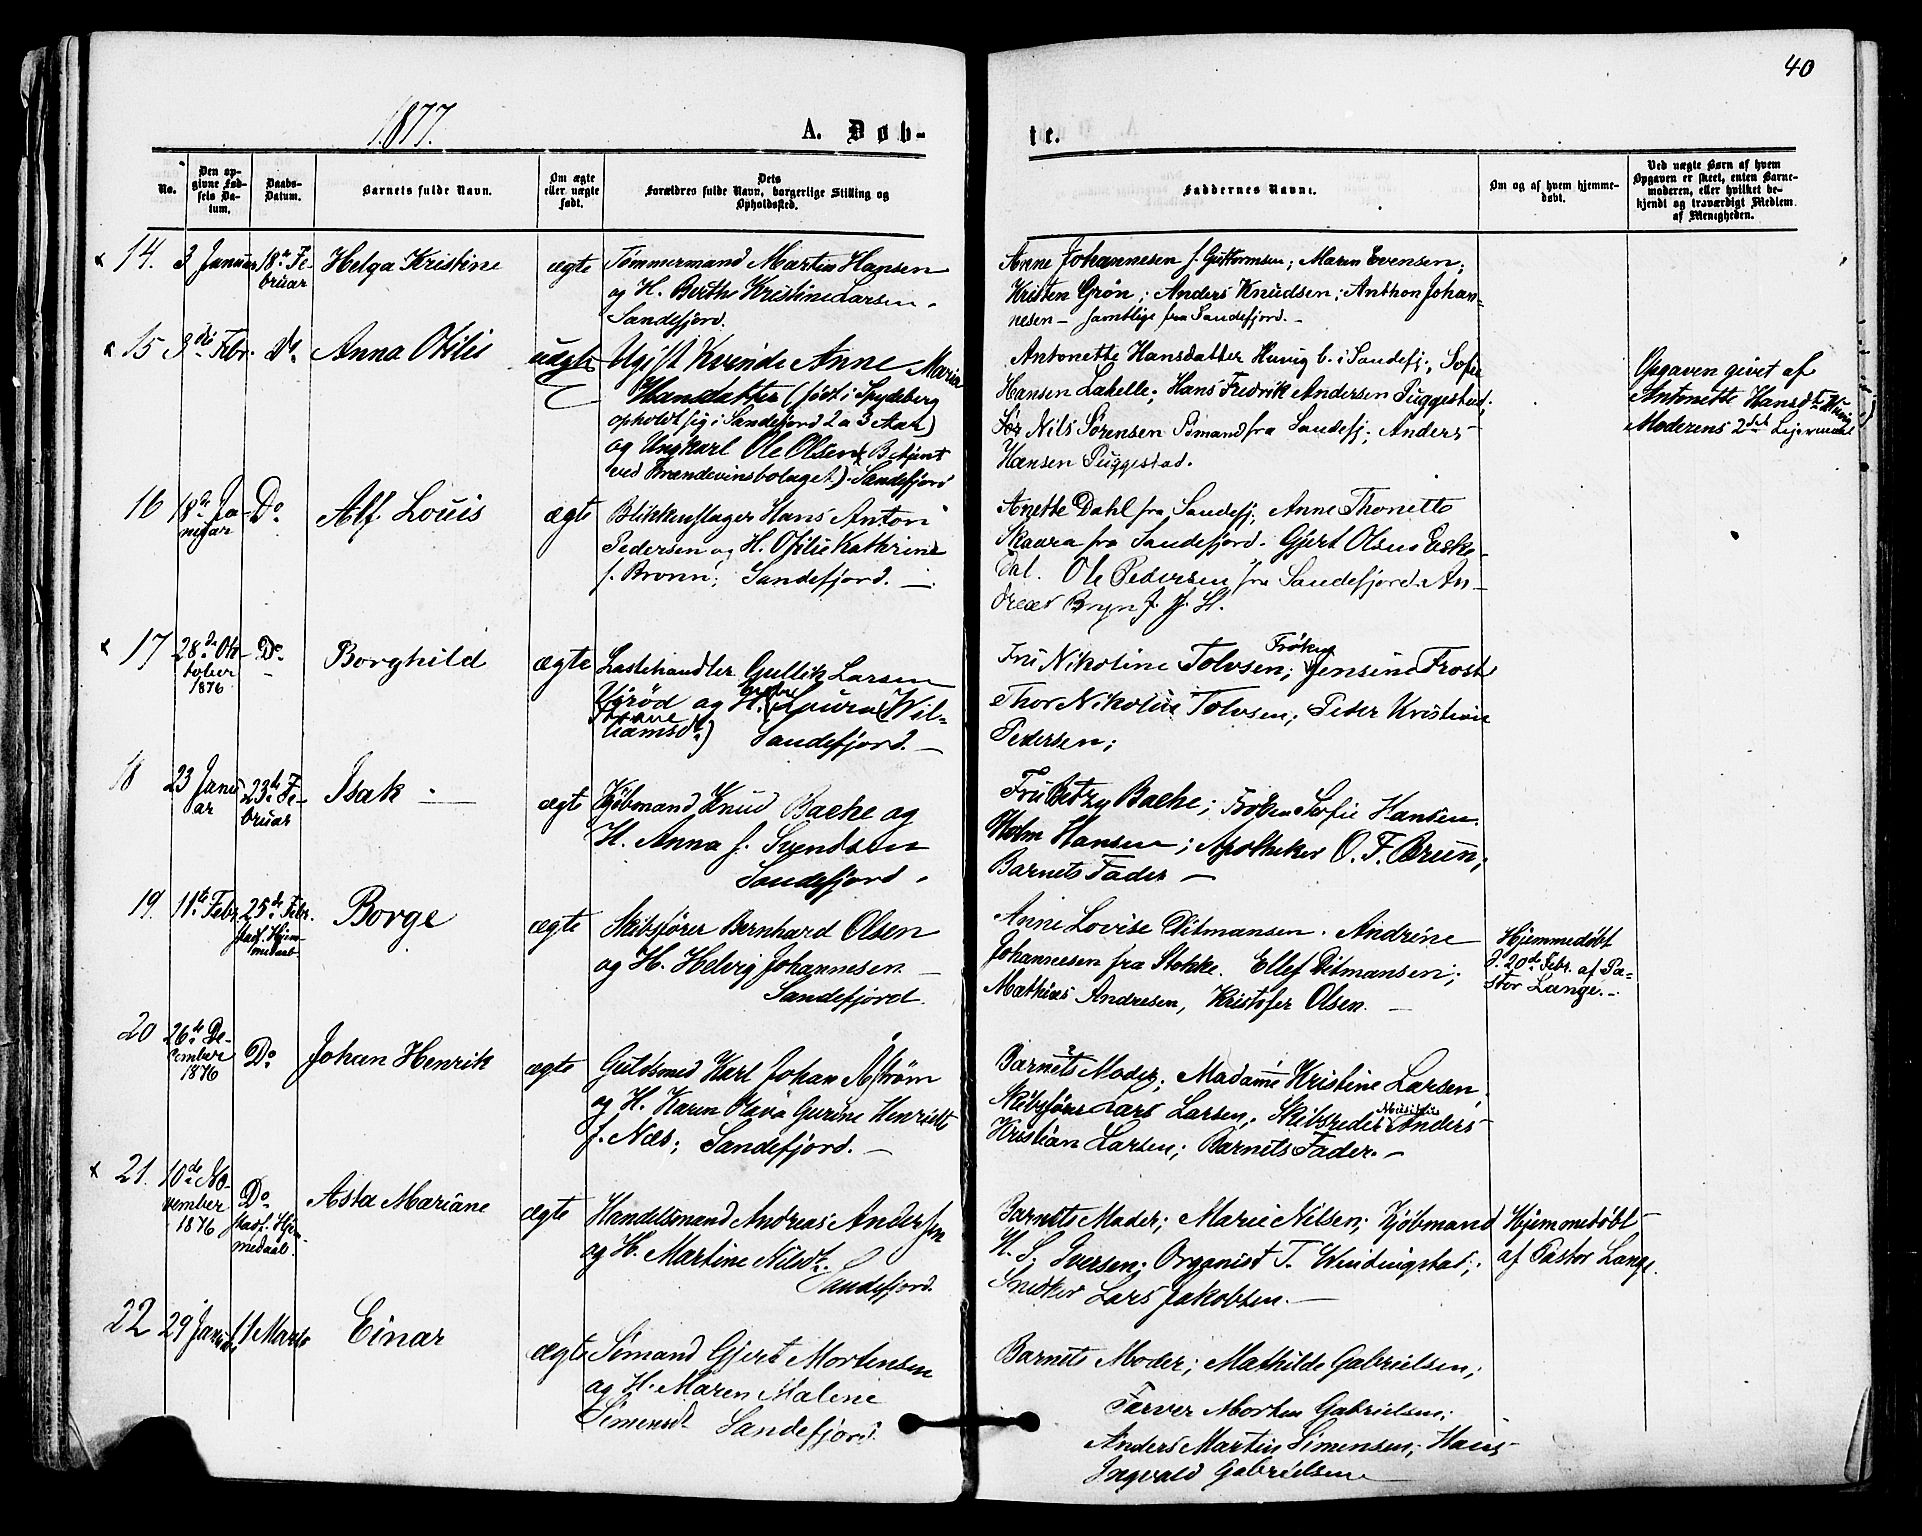 40
1877.
A. Døb-
te.
No.
Den op-
givne Fød-
sels Da-
tum.
Daabs-
Datum.
Barnets fulde Navn.
Om ægte
eller uægte
født.
Dets
Forældres fulde Navn, borgerlige Stilling og
Opholdssted.
Faddernes Navne.
Om og af hvem hjemme-
døbt.
Ved uægte Børn af hvem
Opgaven er skeet, enten Barne-
moderen, eller hvilket be-
kjendt og troværdigt Medlem
af Menigheden.
14.
3 Januar
18de Fe-
bruar
Helga Kristine
ægte
Tømmermand Martin Hansen
og H. Berthe Kristine Larsen.
Sandefjord.
Anne Johannesen f. Guttormsen; Maren Evensen;
Kristen Grøn; Anders Knudsen; Anthon Johan-
nesen - samtlige fra Sandefjord. -
15
3de Febr.
Do
Anna Otilie
uægte
Ugift Kvinde Anne Maria
Hansdatter (født i Spydeberg
opholdt sig i Sandefjord 2 a 3 Aar)
og Ungkarl Ole Olsen (Betjent
ved Brændevinsbolaget) Sandefjord
Antonette Hansdatter Huvig b. i Sandefj., Sofie
Hansen Lahelle; Hans Fredrik Andersen Puggestad;
Nils Sørensen Sømand fra Sandefj; Anders
Hansen Puggestad.
Opgaven givet af
Antonette Hansdtr Huvig
Moderens 2det Lejermaal
16
18de Ja-
nuar
Do
Alf Louis
ægte
Blikkenslager Hans Anton
Pedersen og H. Otilie Kathrine
f. Bronn; Sandefjord. -
Anette Dahl fra Sandefj; Anne Thonette
Skaara fra Sandefjord. Gjert Olsen Eske-
dal. Ole Pedersen fra Sandefjord. An-
dreas Bryn
17
28de Ok-
tober
1876
Do
Borghild
ægte
Lastehandler Gullik Larsen
og H. Laura Wil-
liamsd.) Sandefjord. -
Fru Nikoline Tolvsen; Frøken Jensine Frost
Thor Nikolai Tolvsen; Peder Kristian
Pedersen;
18
23 Janu-
ar
23de Fe-
bruar
Isak -
ægte
Kjøbmand Knud Bache og
H. Anna f. Svendsen
Sandefjord.
Fru Betzy Bache; Frøken Sofie Hansen.
Hansen; Apotheker O. F. Brun;
Barnets Fader -
19.
11te Febr.
25de Febr.
stadf. Hjem-
medaab
Borge
ægte
Skibsfører Bernhard Olsen
og H. Helvig Johannesen. -
Sandefjord.
Anne Lovise Ditmansen. Andrine
Johannesen fra Stokke. Ellef Ditmansen;
Mathias Andresen, Kristofer Olsen. -
Hjemmedøbt
d. 20de Febr. af Pa-
stor Lange. -
20
26de De-
cember
1876
Do
Johan Henrik
ægte
Guldsmed Karl Johan Åstrøm
og H. Karen Olava Gurine Henriette
f. Næs; Sandefjord. -
Barnets Moder; Madame Kristine Larsen,
Skibsfører Lars Larsen; Skibsreder Anders
Kristian Larsen; Barnets Fader. -
21.
10de No-
vember
1876
Do
stadf. Hjem-
medaab.
Asta Mariane
ægte
Handelsmand Andreas Andersen
og H. Martine Nilsdtr.
Sandefjord.
Barnets Moder; Marie Nilsen; Kjøbmand
H. S. Iversen; Organist T. Windingstad;
Snedker Lars Jakobsen. -
Hjemmedøbt
af Pastor Lange.
22
29 Januar
1 Marts
Einar
ægte
Sømand Gjert Mortensen
og H. Maren Malene
Simensdt Sandefjord.
Barnets Moder; Mathilde Gabrielsen;
Farver Morten Gabrielsen;
Anders Martin Simensen; Hans
Ingvald Gabrielsen